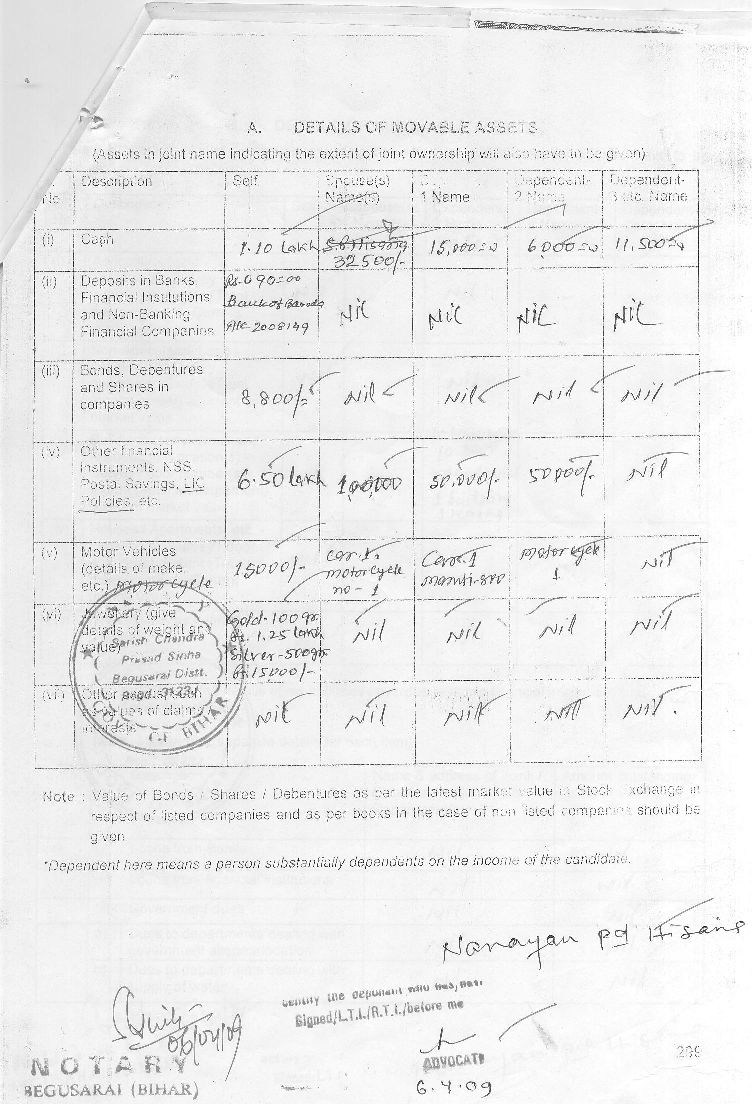 A. DETAILS OF MOVABLE ASSETS
(Assets in joint name indicating the extent of joint ownership will also have to be given)
No Description Self Spouse(s) Name(s) 1 Name Dependent-2 Name Dependent-3 etc. Name
(i) Cash 1.10 Lakh 32500/- 15,000=00 6000=00 11,500=00
(ii) Deposits in Banks,
Financial Institutions
and Non-Banking
Financial Companies
Bank of Baroda
A/c-2008149
Nil Nil Nil Nil
(iii) Bonds, Debentures
and Shares in
companies
8,800/- Nil Nil Nil Nil
(iv) Other financial
instruments, NSS,
Postal Savings, LIC
Policies, etc.
6.50 lakh 50,000/- 50000/- Nil
(v) Motor Vehicles
(details of make,
etc.) Motor cycle
15000/-
Car.1.
motorcycle
no-1
Car.1
motorcycle
1
Nil
(vi) Jewellery (give
details of weight and
value)
Gold-100gr
Rs. 1.25 lakh
Silver-500gr
Rs.15000/-
Nil Nil Nil Nil
Other
values of claims
interests
Nil Nil Nil Nil Nil.
Satish Chandra
Prasad Sinha
Begusarai Distt.
GOVT. OF BIHAR
Note : Value of Bonds / Shares / Debentures as per the latest market value in Stock Exchange in
respect of listed companies and as per books in the case of non listed companies should be
given.
*Dependent here means a person substantially dependents on the income of the candidate.
Narayan pd
identify the deponent who has,
Signed/L.T.I./R.T.I./before me
06/04/09
ADVOCATE
6.4.09
NOTARY
BEGUSARAI (BIHAR)
299